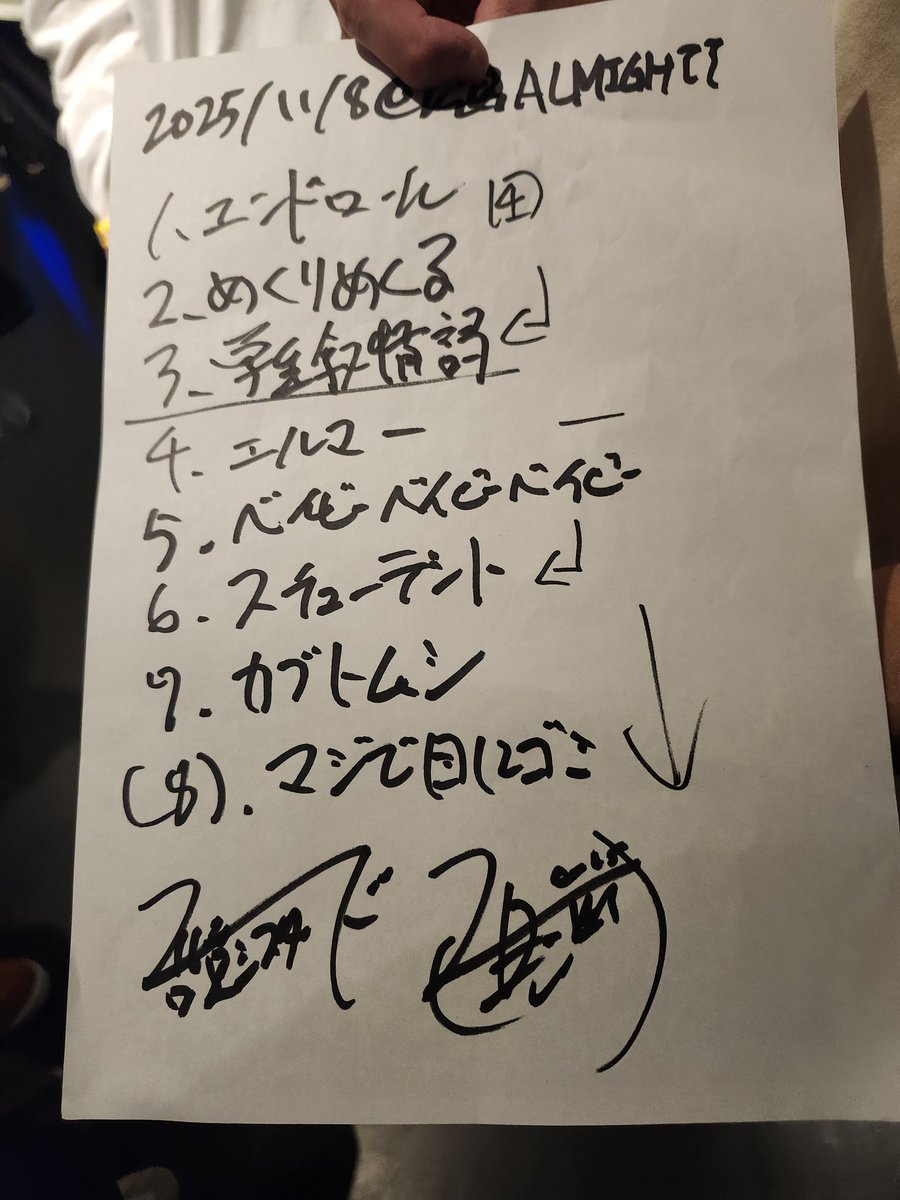 2025/11/8@ ALMIGHTY
1. エンドロール (4)
2. めくりめくる
3. 学生叙情詩
4. エルマー
5. ベイビーベイビーベイビー
6. スチューデント
7. カブトムシ
(8). マジで目にゴミ